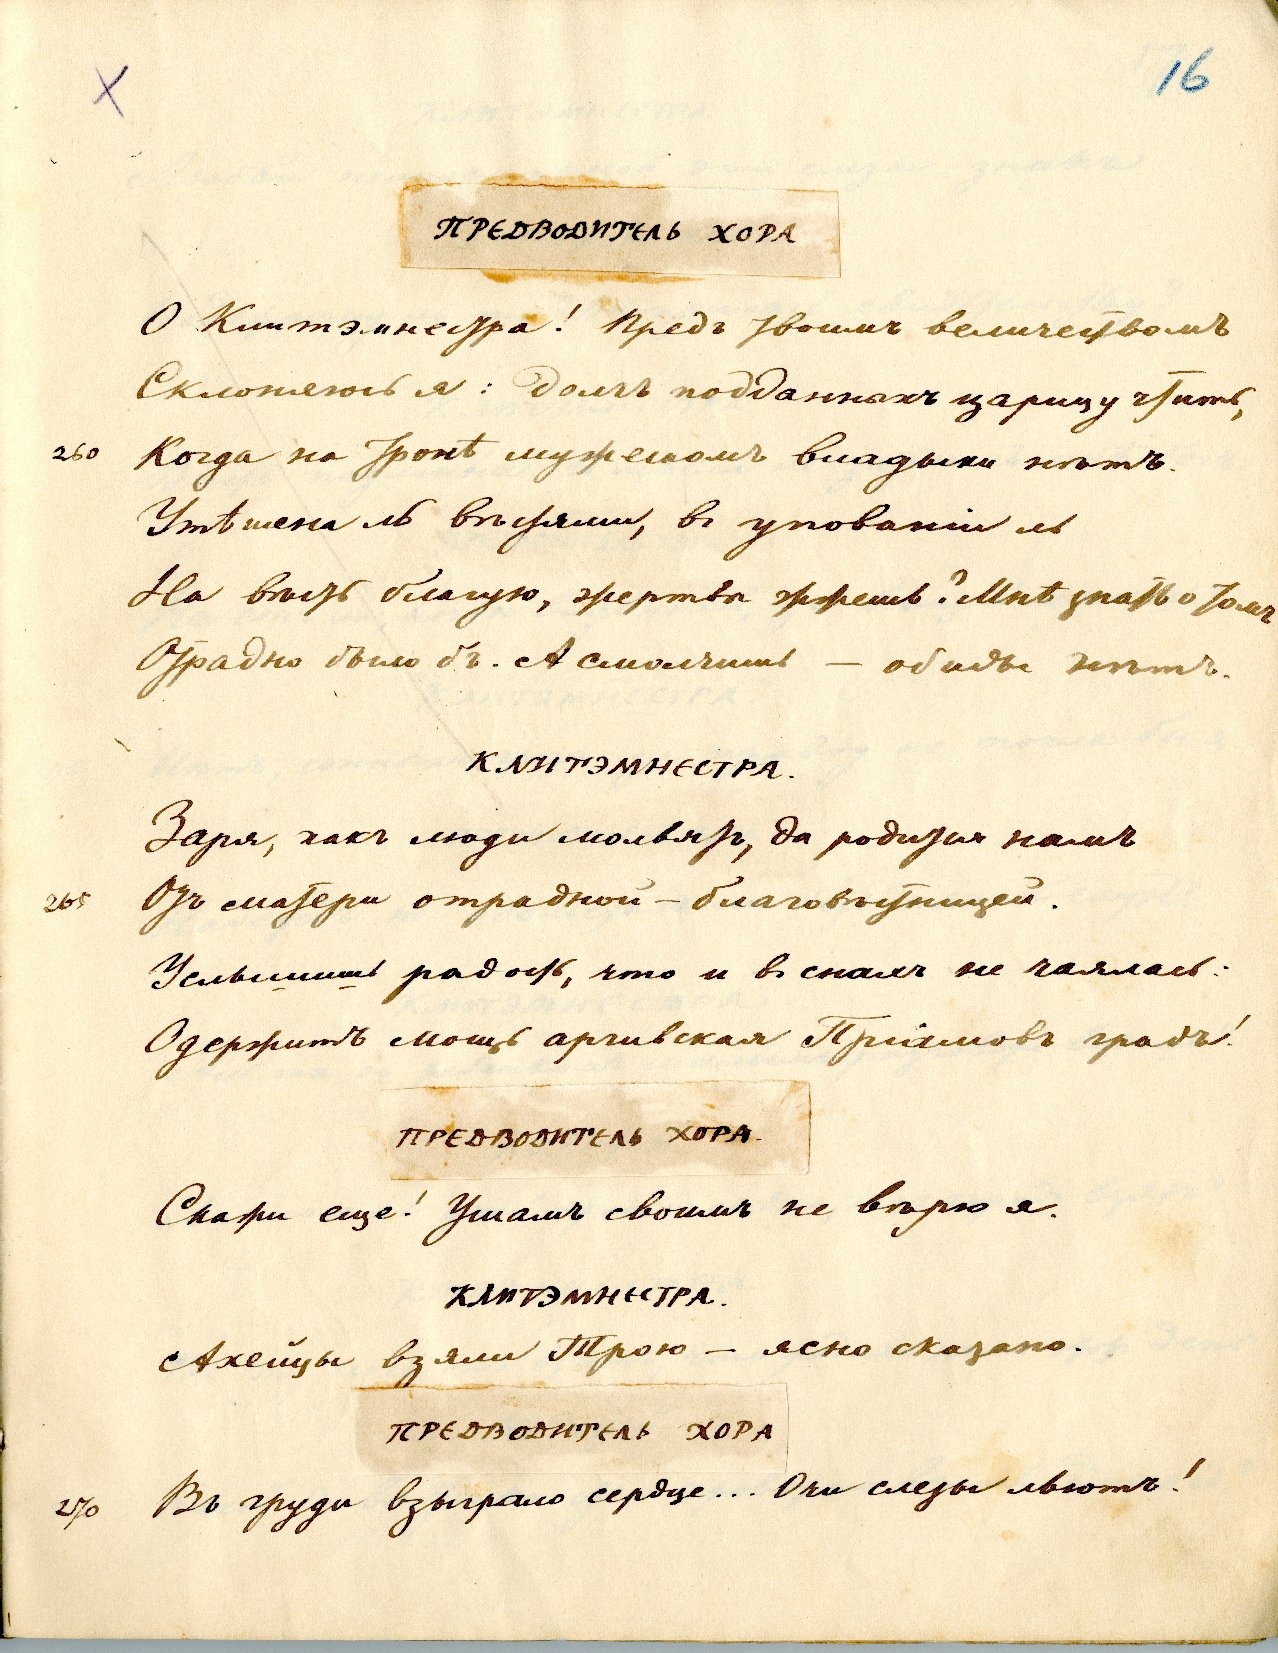 X
16
ПРЕДВОДИТЕЛЬ ХОРА
О Клитэмнестра! Предъ твоимъ величествомъ
Склоняюсь я: долгъ подданныхъ царицу чтить,
260 Когда на тронѣ мужескомъ владыки нѣтъ.
Утѣшена ль вѣстями, въ упованіи ль
На вѣсть благую, жертвы жжешь? Мнѣ знать о томъ
Отрадно было бъ. А смолчишь — обиды нѣтъ.
КЛИТЭМНЕСТРА.
Заря, какъ люди молвятъ, да родится намъ
265 Отъ матери отрадной – благовѣстницей.
Услышишь радость, что и въ снахъ не чаялась:
Одержитъ мощь аргивская Пріамовъ градъ!
ПРЕДВОДИТЕЛЬ ХОРА.
Скажи еще! Ушамъ своимъ не вѣрю я.
КЛИТЭМНЕСТРА.
Ахейцы взяли Трою — ясно сказано.
ПРЕДВОДИТЕЛЬ ХОРА
270 Въ груди взыграло сердце... Очи слезы льютъ!